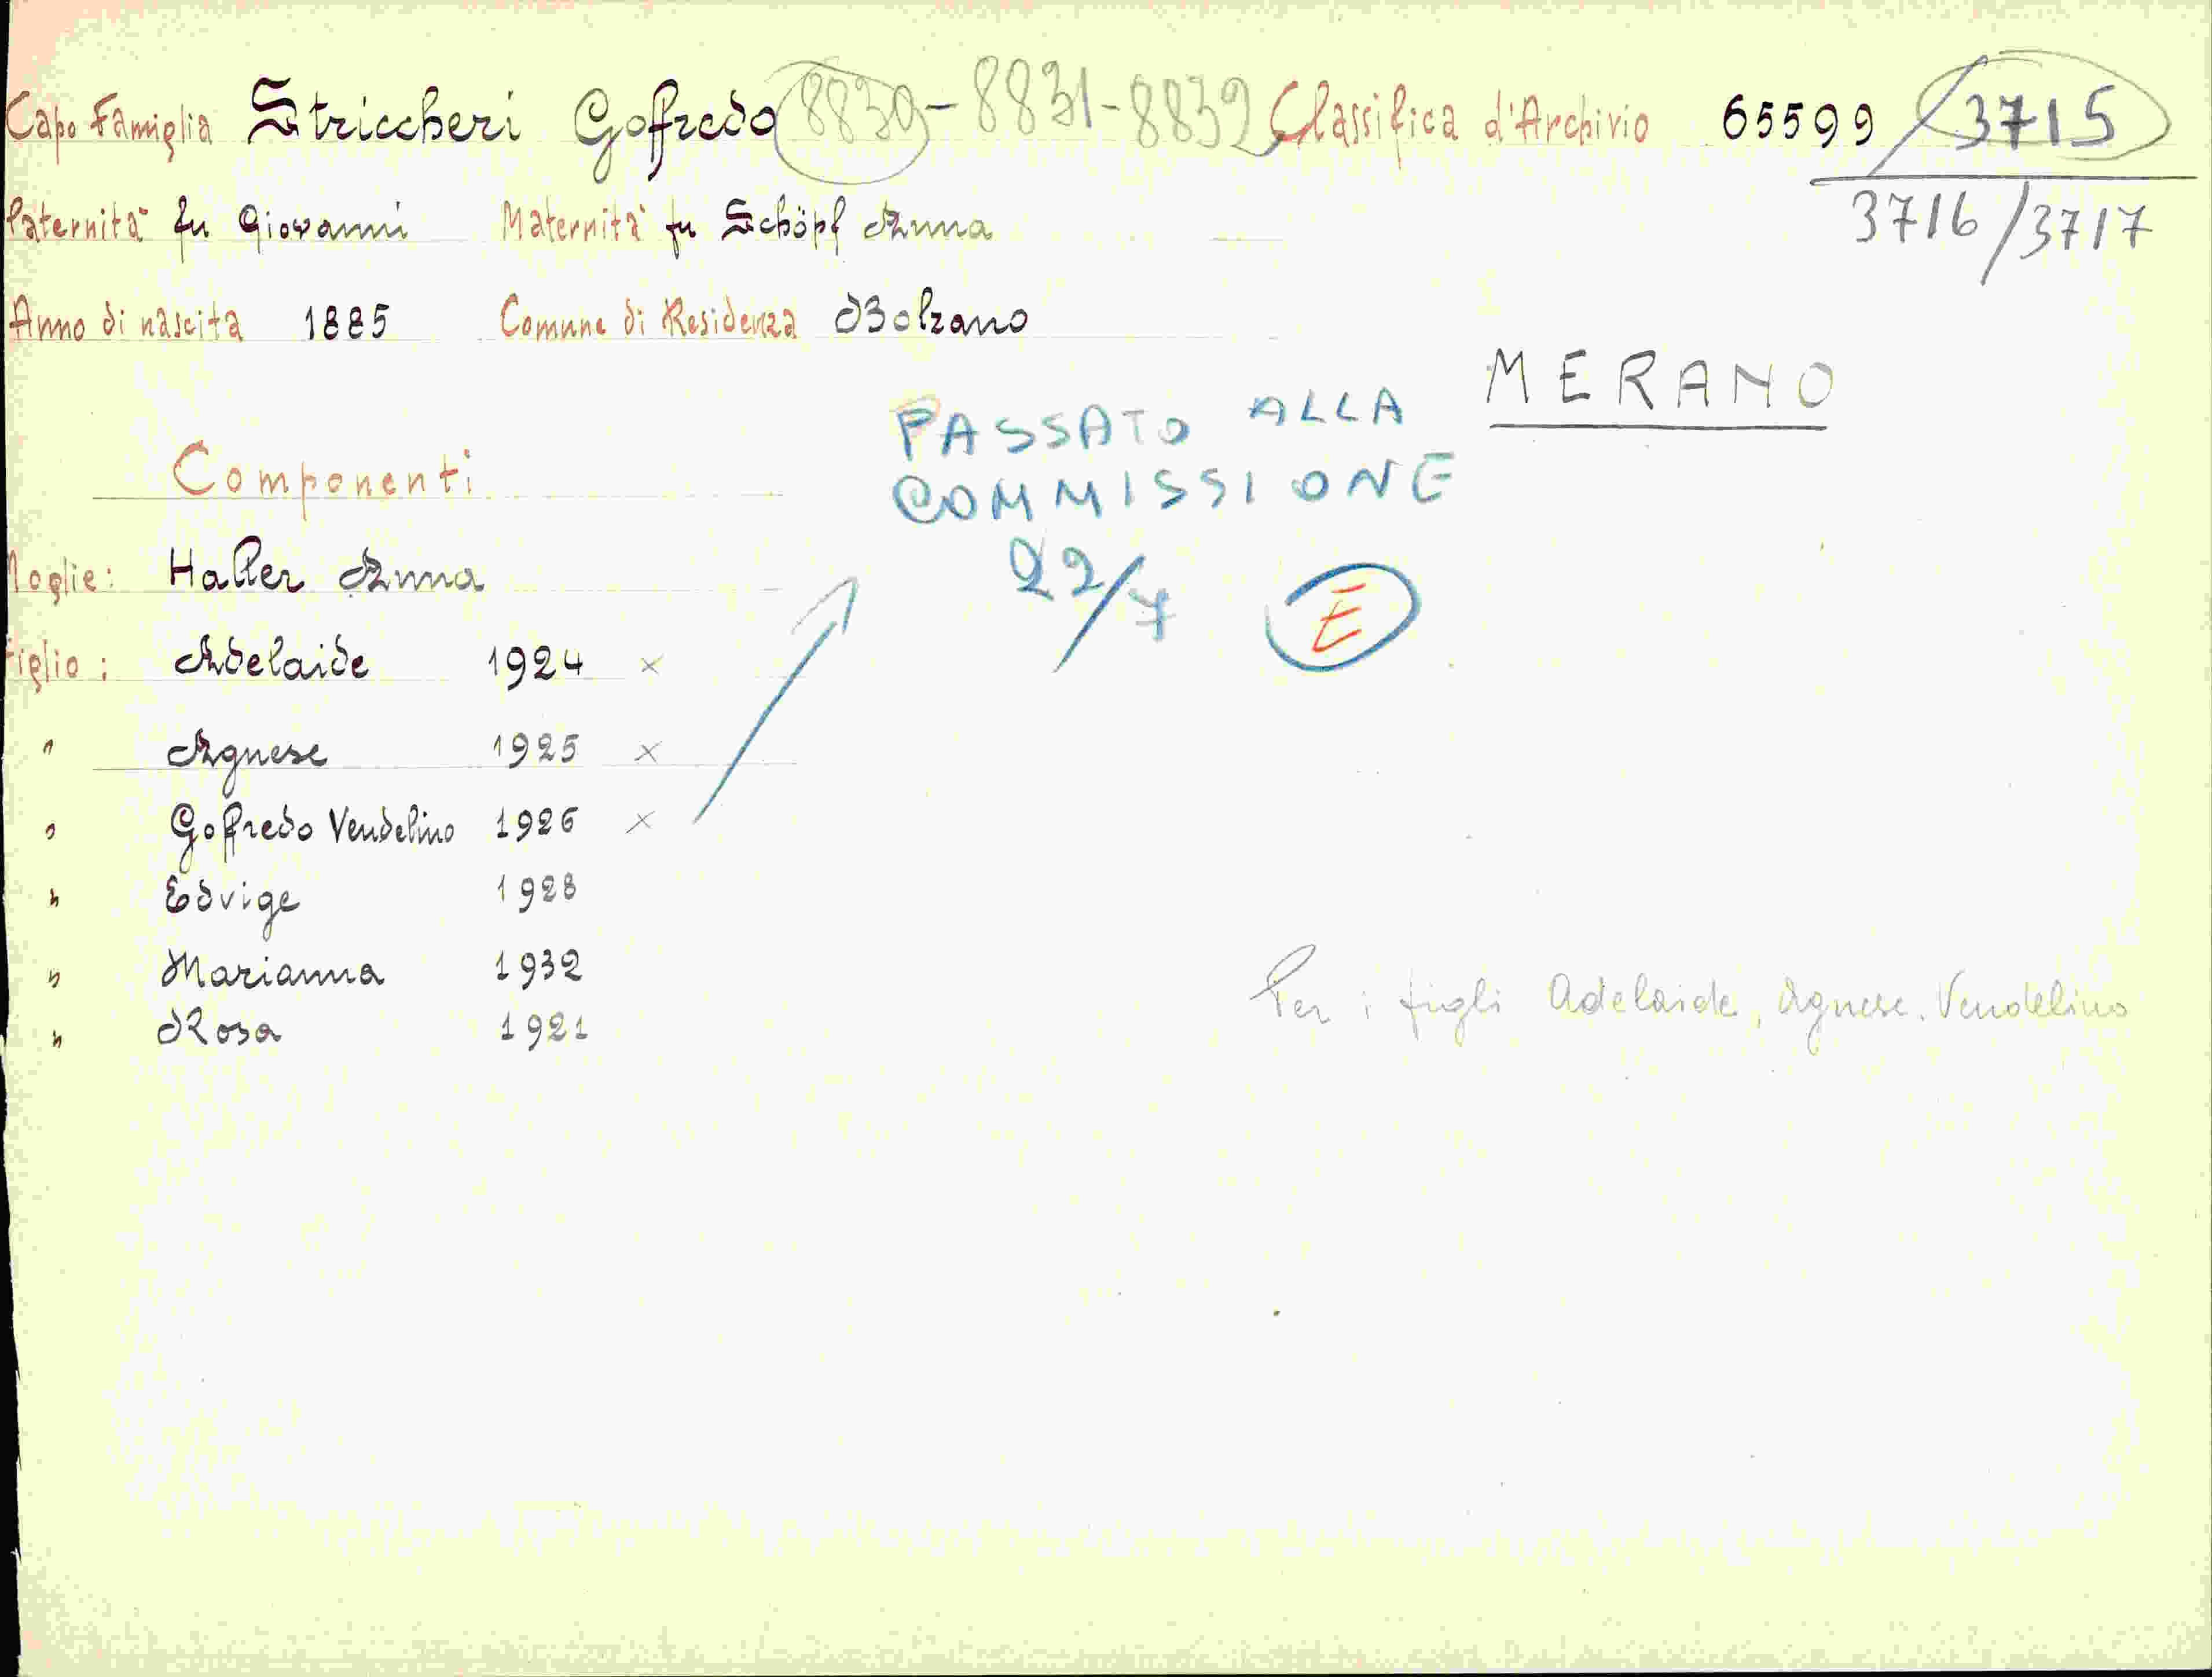 Capo Famiglia Striccheri Goffredo 8830-8831-8832 Classifica d'Archivio 65599/3715
3716/3717
Paternità fu Giovanni Maternità fu Schöpf Anna
Anno di nascita 1885 Comune di Residenza Bolzano
MERANO
PASSATO ALLA
COMMISSIONE
22/7 E
Componenti
Moglie: Haller Anna
Figlio: Adelaide 1924 x
" Agnese 1925 x
" Goffredo Vendelino 1926 x
" Edvige 1928
" Marianna 1932
" Rosa 1921
Per i figli Adelaide, Agnese. Vendelino